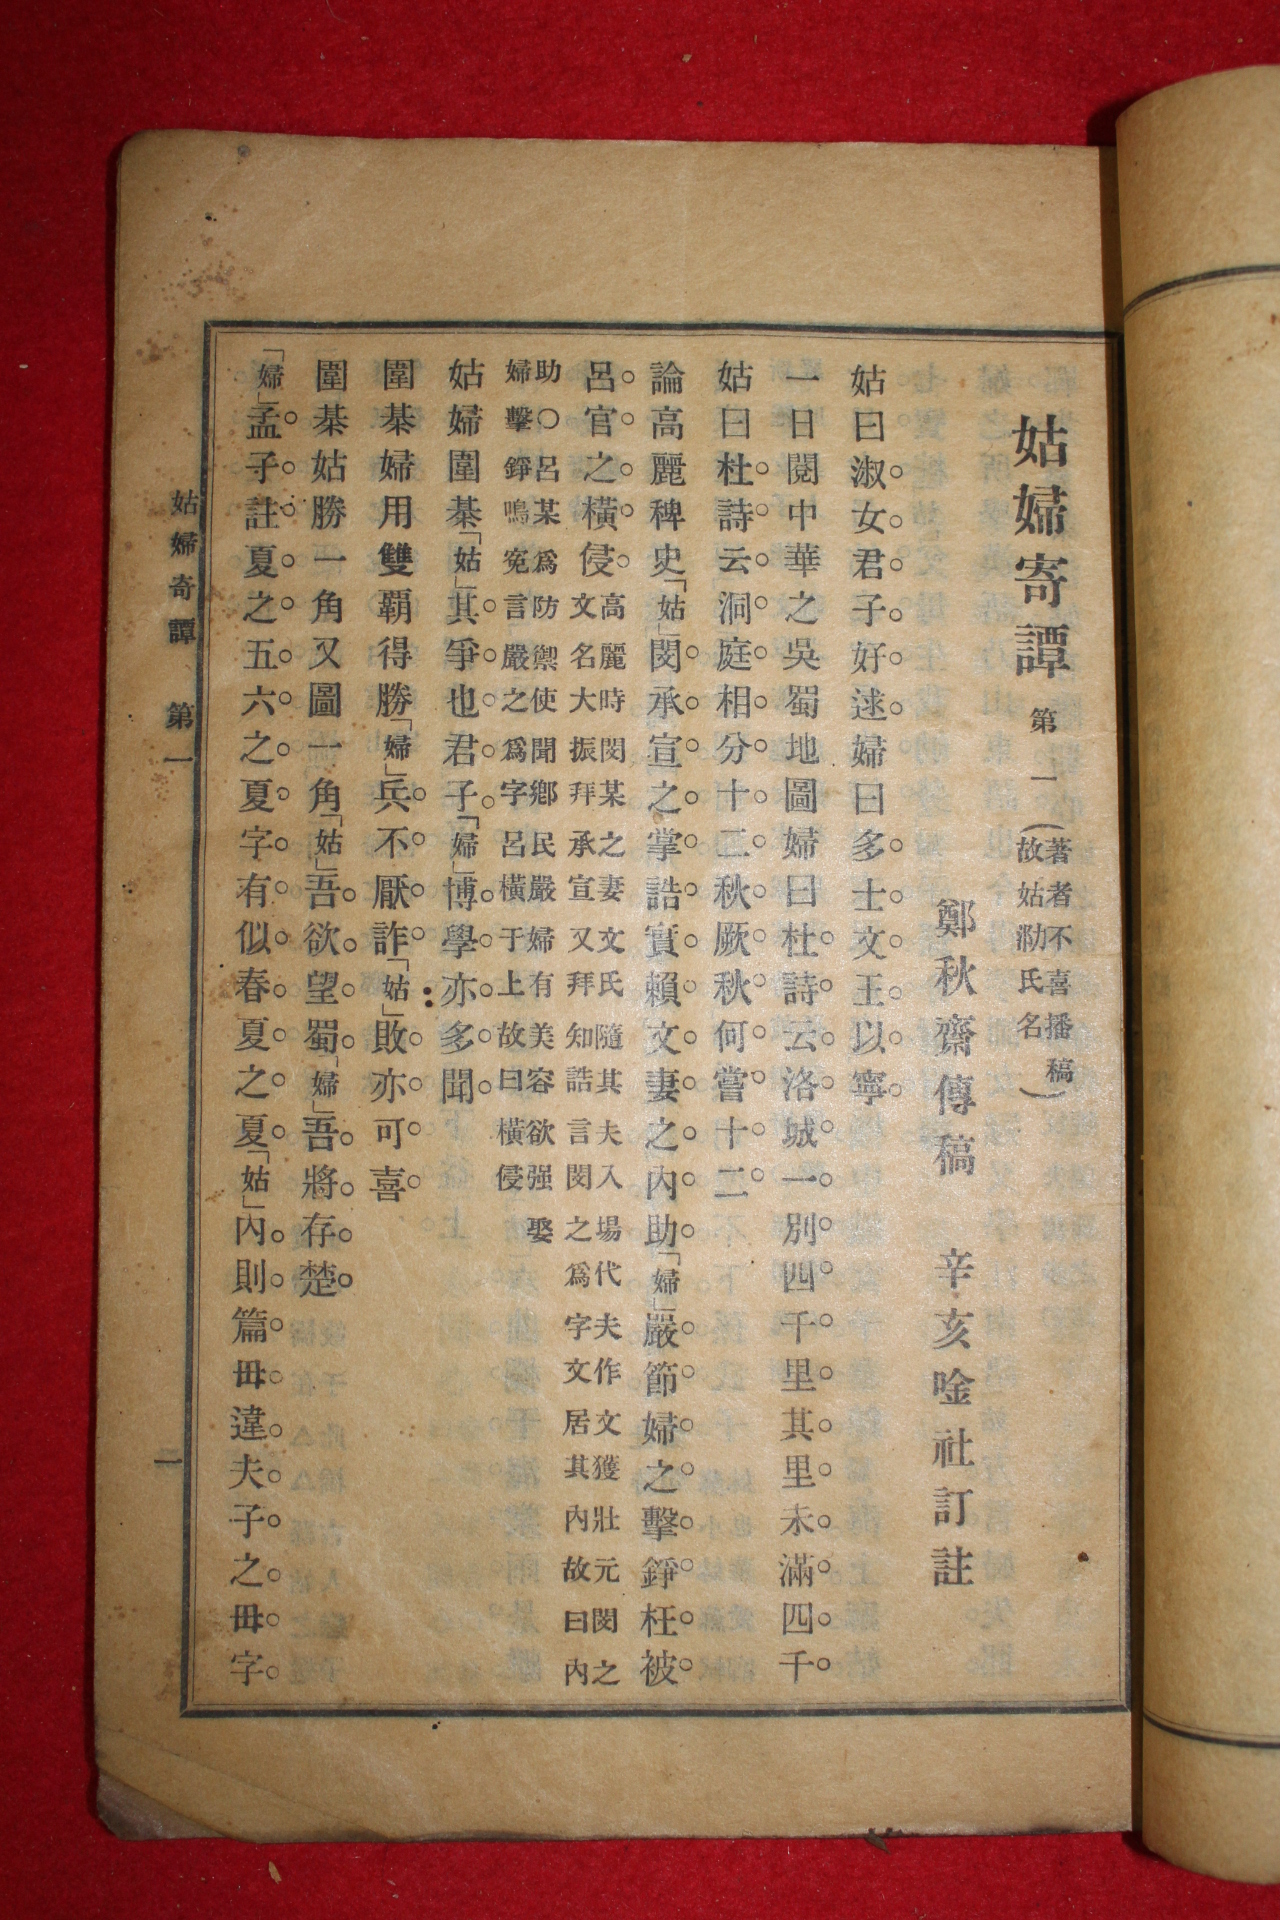 姑婦寄譚 第一(著者不喜播稿故姑泐氏名)
鄭秋齋傳稿 辛亥唫社訂註
姑曰淑女君子好逑婦曰多士文王以寧
一日閱中華之吳蜀地圖婦曰杜詩云洛城一別四千里其里未滿四千
姑曰杜詩云洞庭相分十二秋厥秋何嘗十二
論高麗稗史「姑」閔承宣之掌誥實賴文妻之內助「婦」嚴節婦之擊錚枉被
呂官之橫侵
高麗時閔某之妻文氏隨其夫入場代夫作文獲壯元閔之
文名大振拜承宣又拜知誥言閔之爲字文居其內故曰內
助○呂某爲防禦使聞鄕民嚴婦有美容欲强娶
婦擊錚鳴寃言嚴之爲字呂橫于上故曰橫侵
姑婦圍棊「姑」其爭也君子「婦」博學亦多聞
圍棊婦用雙覇得勝「婦」兵不厭詐「姑」敗亦可喜
圍棊姑勝一角又圖一角「姑」吾欲望蜀「婦」吾將存楚
「婦」孟子註夏之五六之夏字有似春夏之夏「姑」內則篇毌違夫子之毌字
姑婦奇譚 第一
二